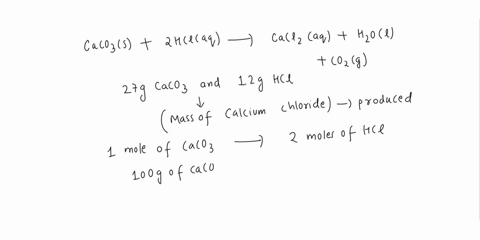 CaCO3(s) + 2HCl(aq) → CaCl2(aq) + H2O(l)
+ CO2(g)
27g CaCO3 and 12g HCl
↓
(Mass of Calcium chloride) → produced
1 mole of CaCO3 → 2 moles of HCl
100g of CaCO